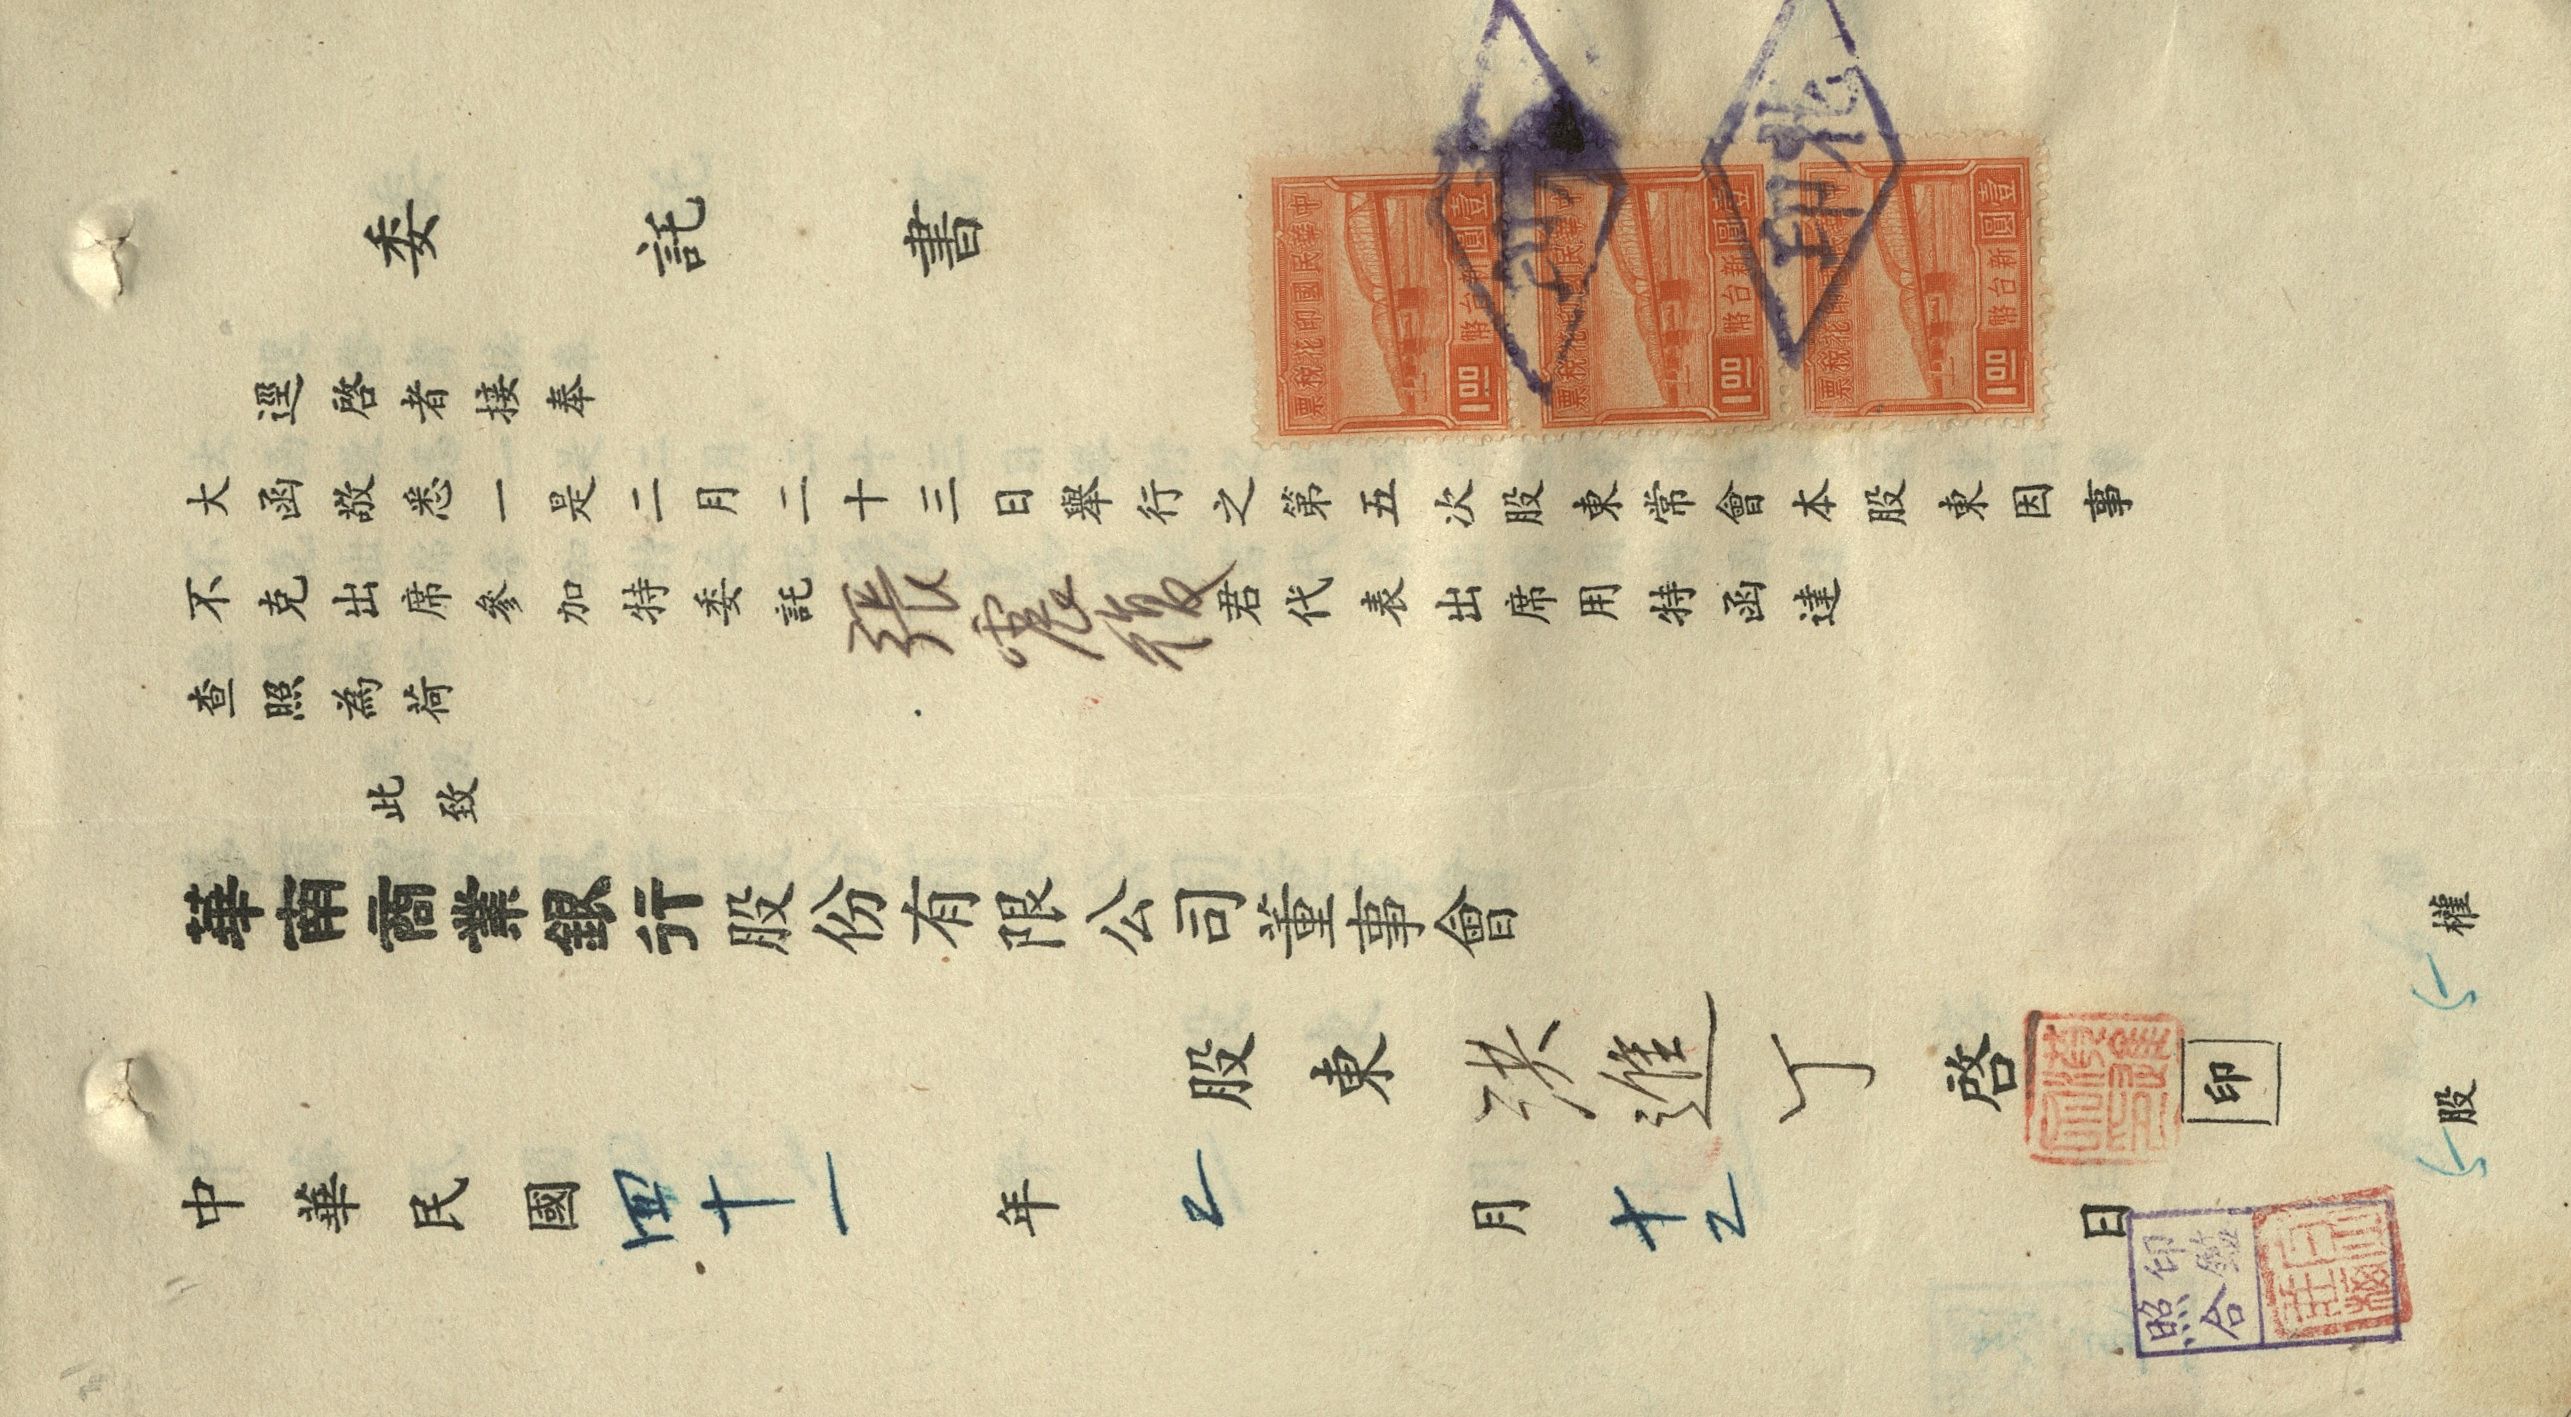 委託書
逕啓者接奉
大函敬悉一是二月二十三日舉行之第五次股東常會本股東因事
不克出席參加特委託張寬發君代表出席用特函達
查照為荷
此致
華南商業銀行股份有限公司董事會
股東洪進丁啓
印
中華民國四十一年2月十2日
5股5權
中華民國印花稅票
新台幣壹圓
1.00
中華民國印花稅票
新台幣壹圓
1.00
中華民國印花稅票
新台幣壹圓
1.00
印鑑
照合